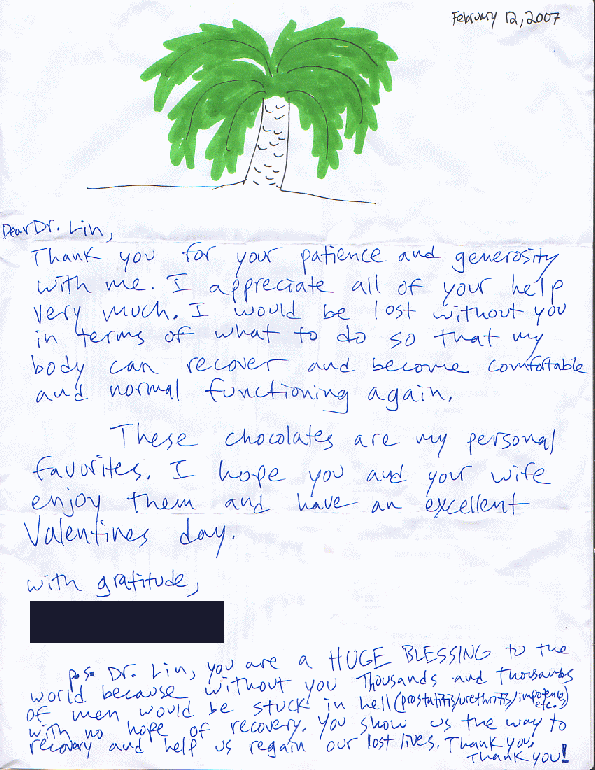 February 12, 2007
Dear Dr. Lin,
Thank you for your patience and generosity
with me. I appreciate all of your help
very much. I would be lost without you
in terms of what to do so that my
body can recover and become comfortable
and normal functioning again.
These chocolates are my personal
favorites. I hope you and your wife
enjoy them and have an excellent
Valentines day.
with gratitude,
p.s. Dr. Lin, you are a HUGE BLESSING to the
world because without you Thousands and thousands
of men would be stuck in hell (prostatitis/urethritis/impotence/etc.)
with no hope of recovery. You show us the way to
recovery and help us regain our lost lives. Thank you,
Thank you!